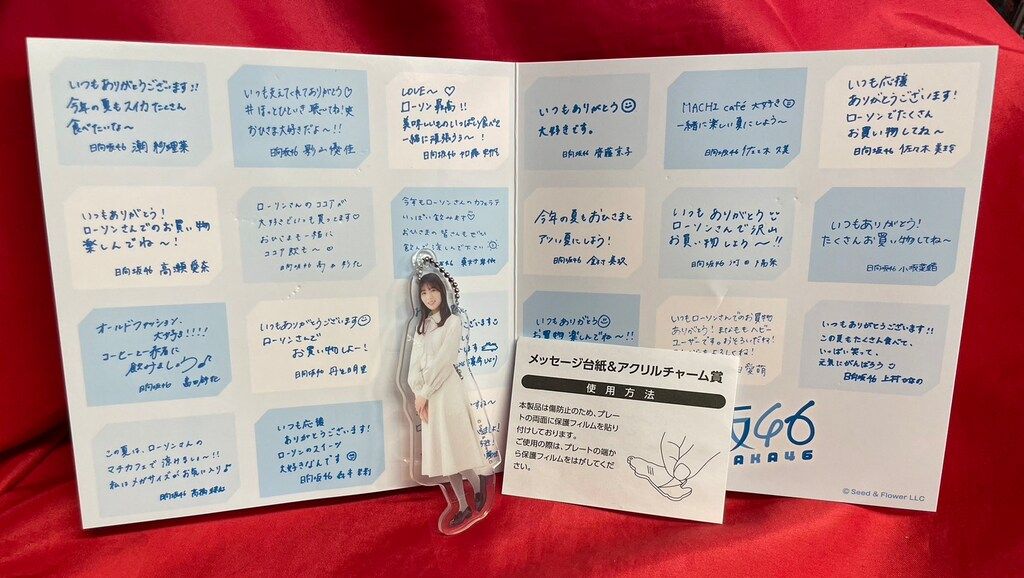 いつもありがとうございます!!
今年の夏もスイカたくさん
食べたいな~
日向坂46 潮 紗理菜
いつも支えてくれてありがとう♡
#ほっとひといき 聴いてね!
おひさま大好きだよ~!!
日向坂46 影山優佳
LOVE~ ♡
ローソン最高!!
美味しいものいっぱい食べて
一緒に頑張ろう~!
日向坂46 加藤史帆
いつもありがとう
大好きです。
日向坂46 齊藤京子
MACHI café 大好き
一緒に楽しい夏にしよう~
日向坂46 佐々木久美
いつも応援
ありがとうございます!
ローソンでたくさん
お買い物してね~
日向坂46 佐々木美玲
いつもありがとう!
ローソンでのお買い物
楽しんでね~!
日向坂46 高瀬愛奈
ローソンさんのココアが
大好きでいつも買ってます♡
おひさまも一緒に
ココア飲も~♡
日向坂46
今年もローソンさんのカフェラテ
いっぱい飲みます♡
おひさまの皆さんもぜひ
飲んで涼しんで下さい
日向坂46
今年の夏もおひさまと
アツい夏にしよう!
日向坂46 金村美玖
いつもありがとう
ローソンさんで沢山
お買い物しよう~!!
日向坂46 河田陽菜
いつもありがとう!
たくさんお買い物してね~
日向坂46 小坂菜緒
オールドファッション
大好き!!!!
コーヒーと一緒に
飲みましょう♪
日向坂46
いつもありがとうございます
ローソンさんで
お買い物しよー!
日向坂46 丹生明里
いつもありがとう
お買物楽しんでね~!!
いつもローソンでのお買物
ありがとう!まなももヘビー
ユーザーです。おそろいだね!
愛萌
いつもありがとうございます!!
この夏もたくさん食べて、
いっぱい笑って、
元気にがんばろう
日向坂46 上村ひなの
この夏は、ローソンさんの
マチカフェで涼みましょ~!!!
私はメガサイズがお気に入り♪
日向坂46
いつも応援
ありがとうございます!
ローソンのスイーツ
大好きなんです
日向坂46
メッセージ台紙&アクリルチャーム賞
使用方法
本製品は傷防止のため、プレー
トの両面に保護フィルムを貼り
付けしております。
ご使用の際は、プレートの端か
ら保護フィルムをはがしてくだ
さい。
坂46
ZAKA46
© Seed & Flower LLC